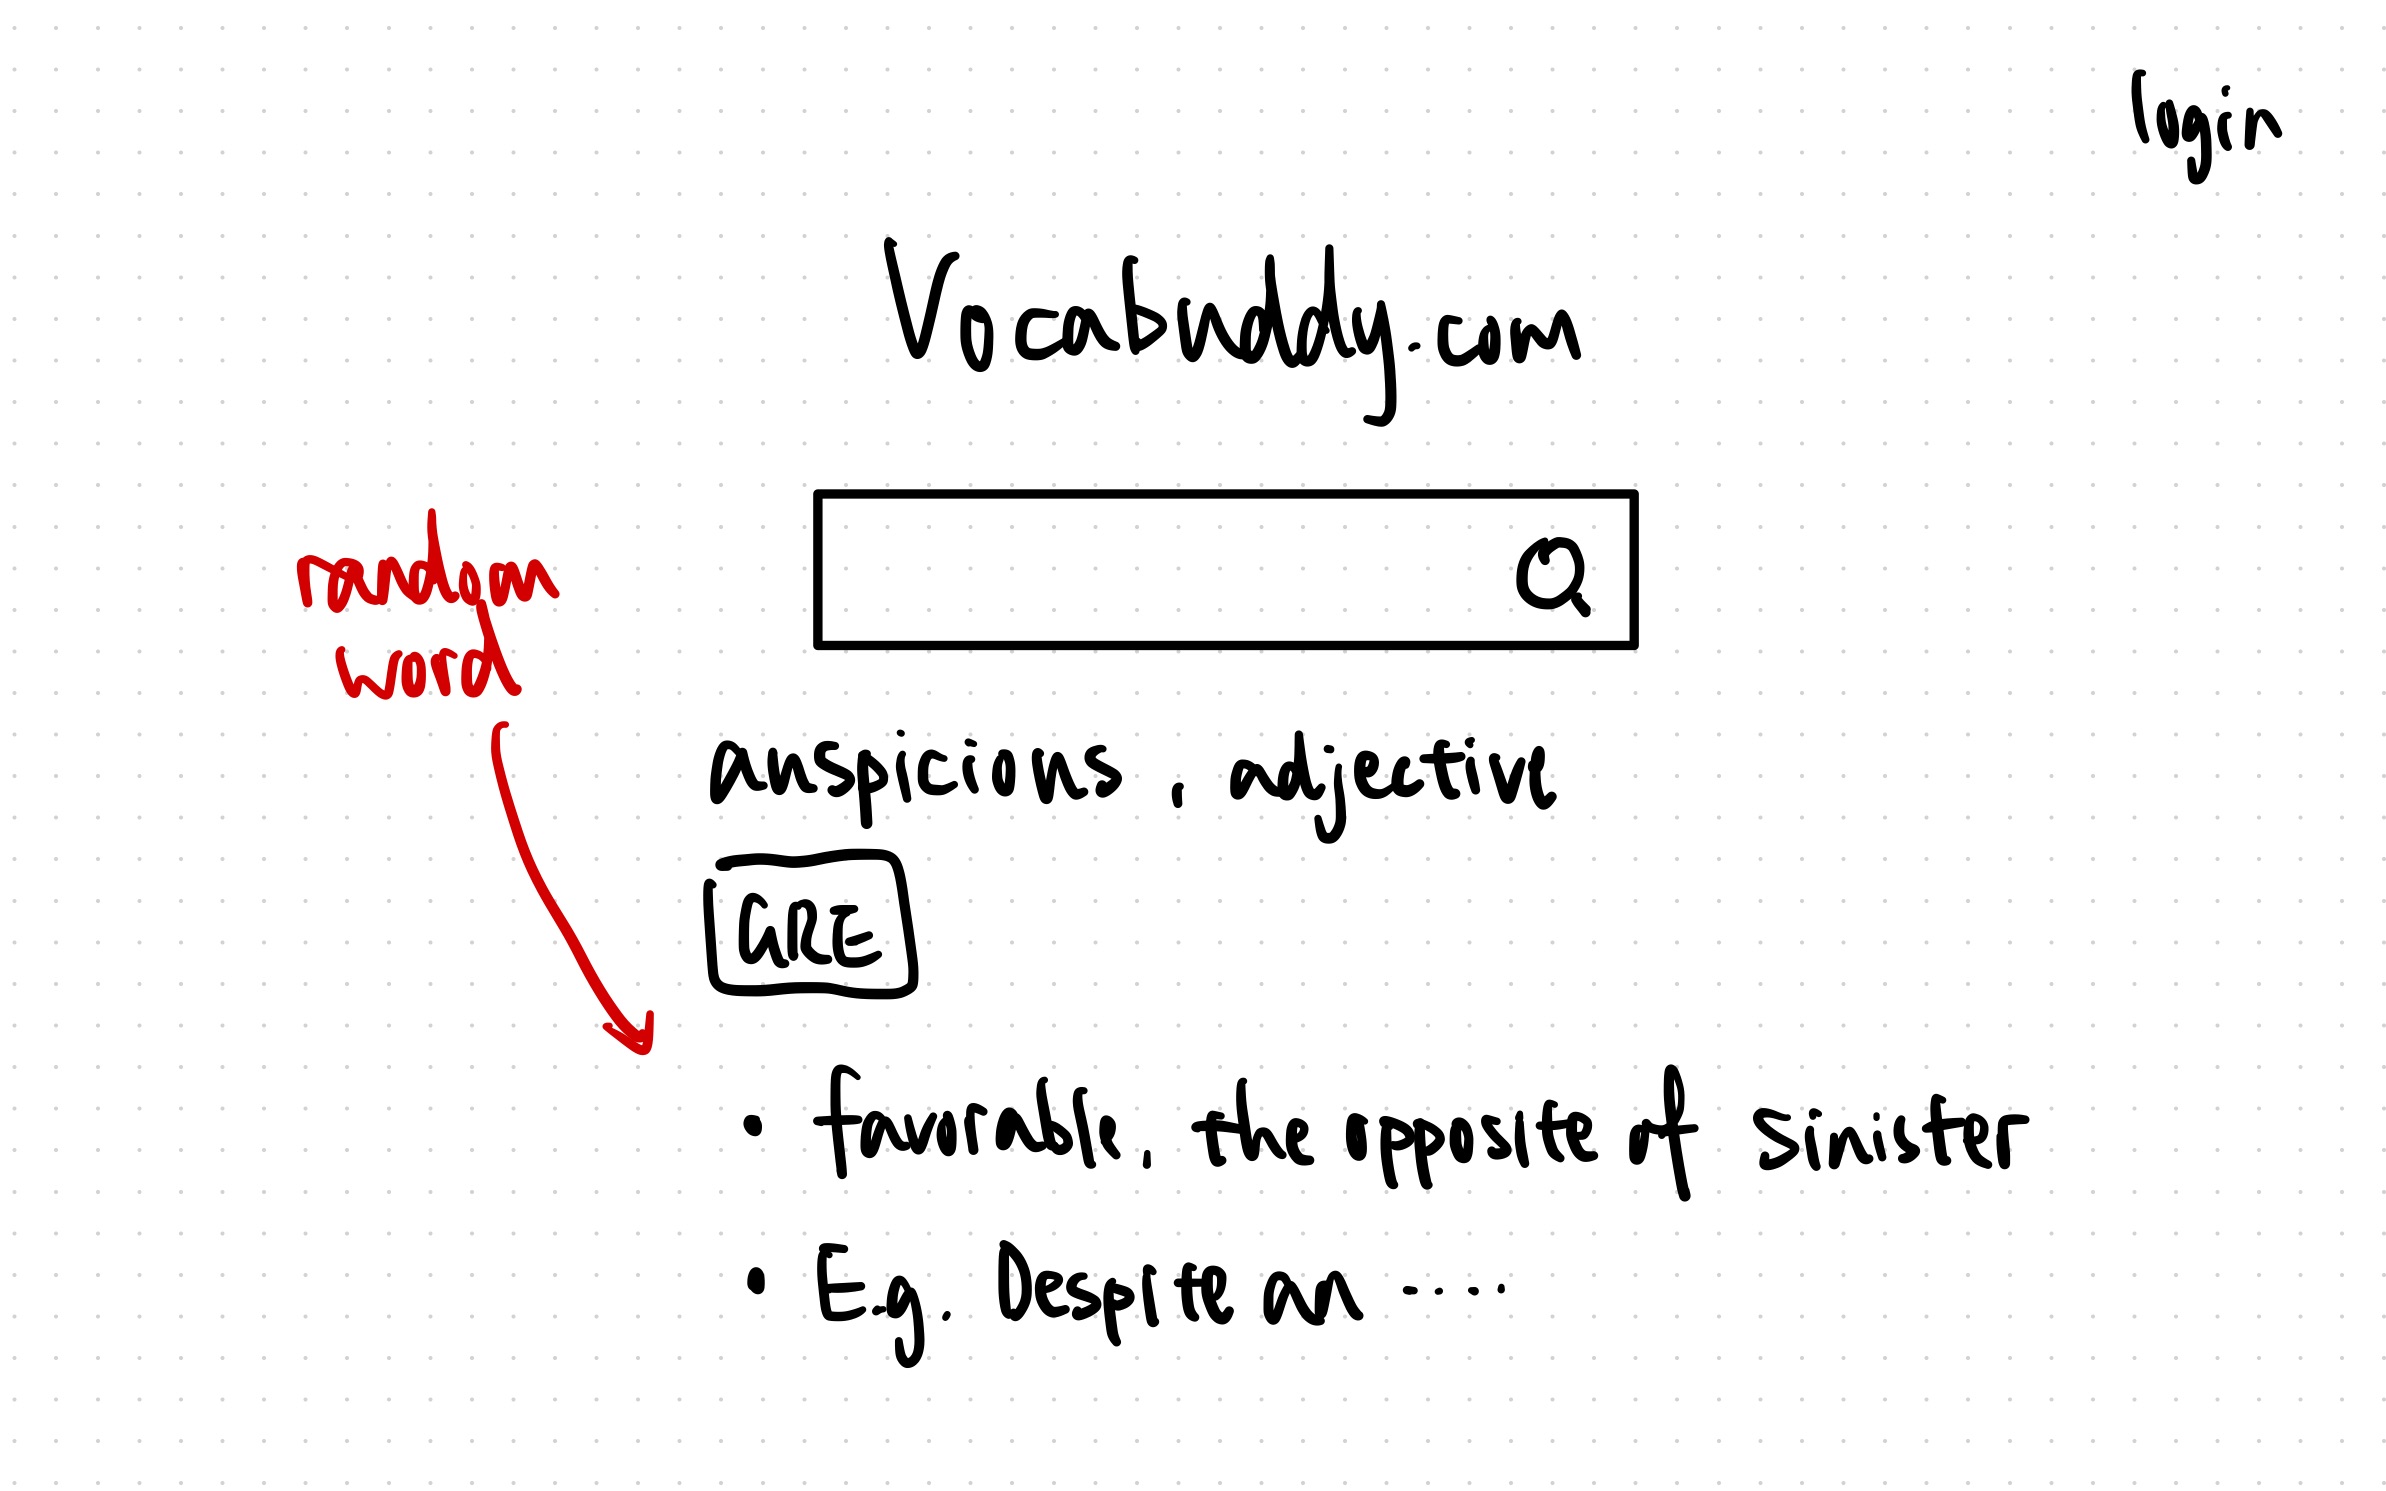 login
Vocabuddy.com
random
word
auspicious, adjective
GRE
• favorable, the opposite of sinister
• E.g. Despite an .....